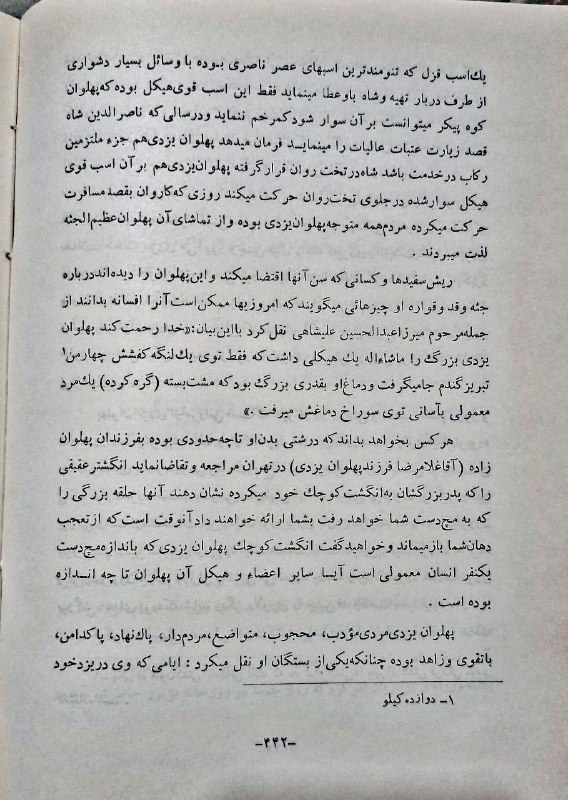 یك‌اسب قزل که تنومندترین اسبهای عصر ناصری بوده با وسائل بسیار دشواری
از طرف دربار تهیه وشاه باوعطا مینماید فقط این اسب قوی‌هیکل بوده که‌پهلوان
کوه پیکر میتوانست بر آن سوار شود کمرخم ننماید ودرسالی‌که ناصرالدین شاه
قصد زیارت عتبات عالیات را مینمایـد فرمان میدهد پهلوان یزدی‌هم جزء ملتزمین
رکاب درخدمت باشد شاه‌درتخت روان قرارگرفته پهلوان‌یزدی‌هم بر آن اسب قوی
هیکل سوارشده درجلوی تخت‌روان حرکت میکند روزی که‌کاروان بقصد مسافرت
حرکت میکرده مردم‌همه متوجه‌پهلوان‌یزدی بوده واز تماشای آن پهلوان‌عظیم‌الجثه
لذت میبردند .
ریش‌سفیدها وکسانی که سن‌آنها اقتضا میکند واین‌پهلوان را دیده‌اند درباره
جثه وقد وقواره او چیزهائی میگویند که امروزیها ممکن‌است‌آنرا افسانه بدانند از
جمله‌مرحوم میرزاعبدالحسین علیشاهی نقل‌کرد بااین‌بیان:«خدا رحمت‌کند پهلوان
یزدی بزرگ را ماشاءاله یك هیکلی داشت‌که فقط توی یك‌لنگه‌کفشش چهارمن۱
تبریزگندم جامیگرفت ودماغ‌او بقدری بزرگ بود که مشت‌بسته (گره کرده) یك‌مرد
معمولی بآسانی توی سوراخ دماغش میرفت .»
هرکس بخواهد بداند که درشتی بدن‌او تاچه‌حدودی بوده بفرزندان پهلوان
زاده (آقاغلامرضا فرزندپهلوان یزدی) درتهران مراجعه وتقاضانماید انگشترعقیقی
را که پدربزرگشان به‌انگشت‌کوچك خود میکرده نشان دهند آنها حلقه بزرگی را
که به مچ‌دست شما خواهد رفت بشما ارائه خواهند داد آنوقت است‌که از تعجب
دهان‌شما بازمیماند وخواهیدگفت انگشت‌کوچك پهلوان یزدی‌که باندازه‌مچ‌دست
یکنفر انسان معمولی است آیـا سایر اعضاء و هیکل آن پهلوان تا چه انـدازه
بوده است .
پهلوان یزدی‌مردی‌مؤدب، محجوب، متواضع،مردم‌دار، پاك‌نهاد، پاکدامن،
باتقوی وزاهد بوده چنانکه‌یکی‌از بستگان او نقل میکرد : ایامی که وی دریزدخود
۱- دوازده کیلو
-۴۴۲-